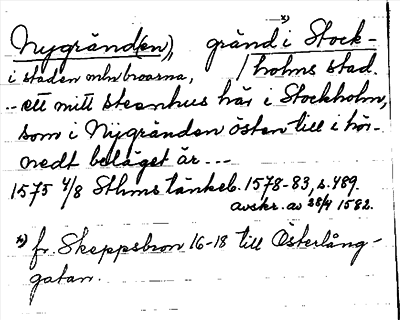 Nygränd(en), gränd *) i Stock-
i staden mln broarna, / holms stad.
-- ett mitt steenhus här i Stockholm,
som i Nygränden östen till i hör-
nedt beläget är ---
1575 4/8 Sthms tänkeb. 1578-83, s. 489.
avskr. av 28/4 1582.
*) fr. Skeppsbron 16-18 till Österlång-
gatan.